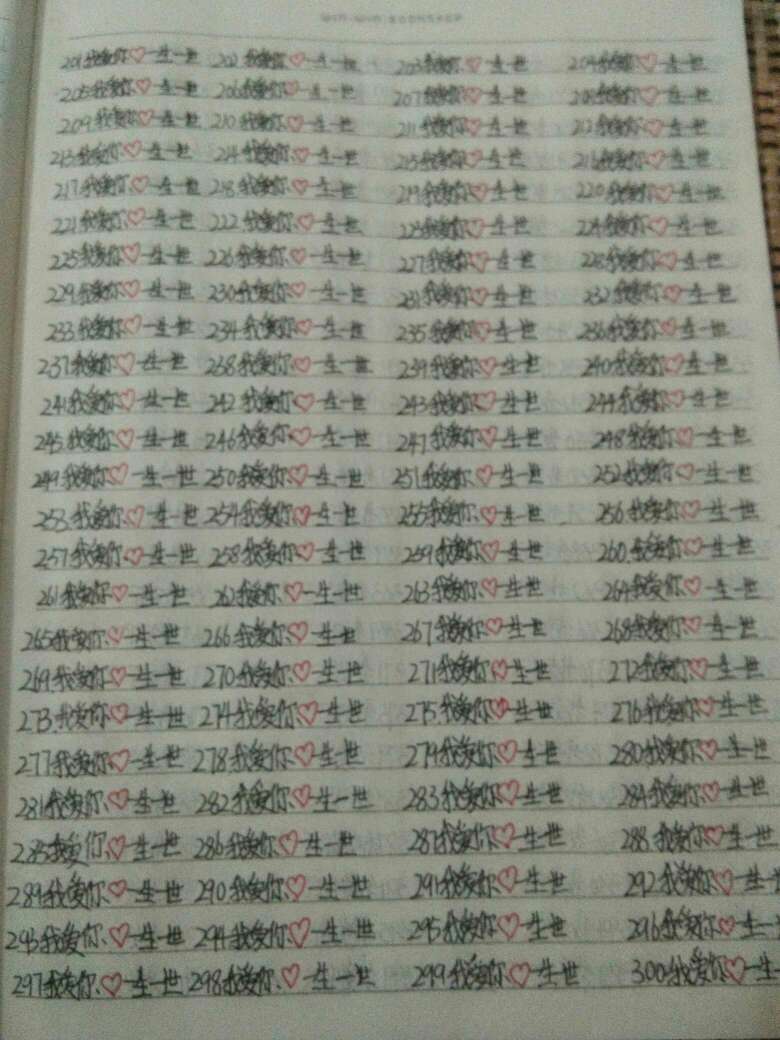 201我爱你♡一生一世 202我爱你♡一生一世 203我爱你♡一生一世 204我爱你♡一生一世
205我爱你♡一生一世 206我爱你♡一生一世 207我爱你♡一生一世 208我爱你♡一生一世
209我爱你♡一生一世 210我爱你♡一生一世 211我爱你♡一生一世 212我爱你♡一生一世
213我爱你♡一生一世 214我爱你♡一生一世 215我爱你♡一生一世 216我爱你♡一生一世
217我爱你♡一生一世 218我爱你♡一生一世 219我爱你♡一生一世 220我爱你♡一生一世
221我爱你♡一生一世 222我爱你♡一生一世 223我爱你♡一生一世 224我爱你♡一生一世
225我爱你♡一生一世 226我爱你♡一生一世 227我爱你♡一生一世 228我爱你♡一生一世
229我爱你♡一生一世 230我爱你♡一生一世 231我爱你♡一生一世 232我爱你♡一生一世
233我爱你♡一生一世 234我爱你♡一生一世 235我爱你♡一生一世 236我爱你♡一生一世
237我爱你♡一生一世 238我爱你♡一生一世 239我爱你♡一生一世 240我爱你♡一生一世
241我爱你♡一生一世 242我爱你♡一生一世 243我爱你♡一生一世 244我爱你♡一生一世
245我爱你♡一生一世 246我爱你♡一生一世 247我爱你♡一生一世 248我爱你♡一生一世
249我爱你♡一生一世 250我爱你♡一生一世 251我爱你♡一生一世 252我爱你♡一生一世
253我爱你♡一生一世 254我爱你♡一生一世 255我爱你♡一生一世 256我爱你♡一生一世
257我爱你♡一生一世 258我爱你♡一生一世 259我爱你♡一生一世 260我爱你♡一生一世
261我爱你♡一生一世 262我爱你♡一生一世 263我爱你♡一生一世 264我爱你♡一生一世
265我爱你♡一生一世 266我爱你♡一生一世 267我爱你♡一生一世 268我爱你♡一生一世
269我爱你♡一生一世 270我爱你♡一生一世 271我爱你♡一生一世 272我爱你♡一生一世
273我爱你♡一生一世 274我爱你♡一生一世 275我爱你♡一生一世 276我爱你♡一生一世
277我爱你♡一生一世 278我爱你♡一生一世 279我爱你♡一生一世 280我爱你♡一生一世
281我爱你♡一生一世 282我爱你♡一生一世 283我爱你♡一生一世 284我爱你♡一生一世
285我爱你♡一生一世 286我爱你♡一生一世 287我爱你♡一生一世 288我爱你♡一生一世
289我爱你♡一生一世 290我爱你♡一生一世 291我爱你♡一生一世 292我爱你♡一生一
293我爱你♡一生一世 294我爱你♡一生一世 295我爱你♡一生一世 296我爱你♡一生一
297我爱你♡一生一世 298我爱你♡一生一世 299我爱你♡一生一世 300我爱你♡一生一